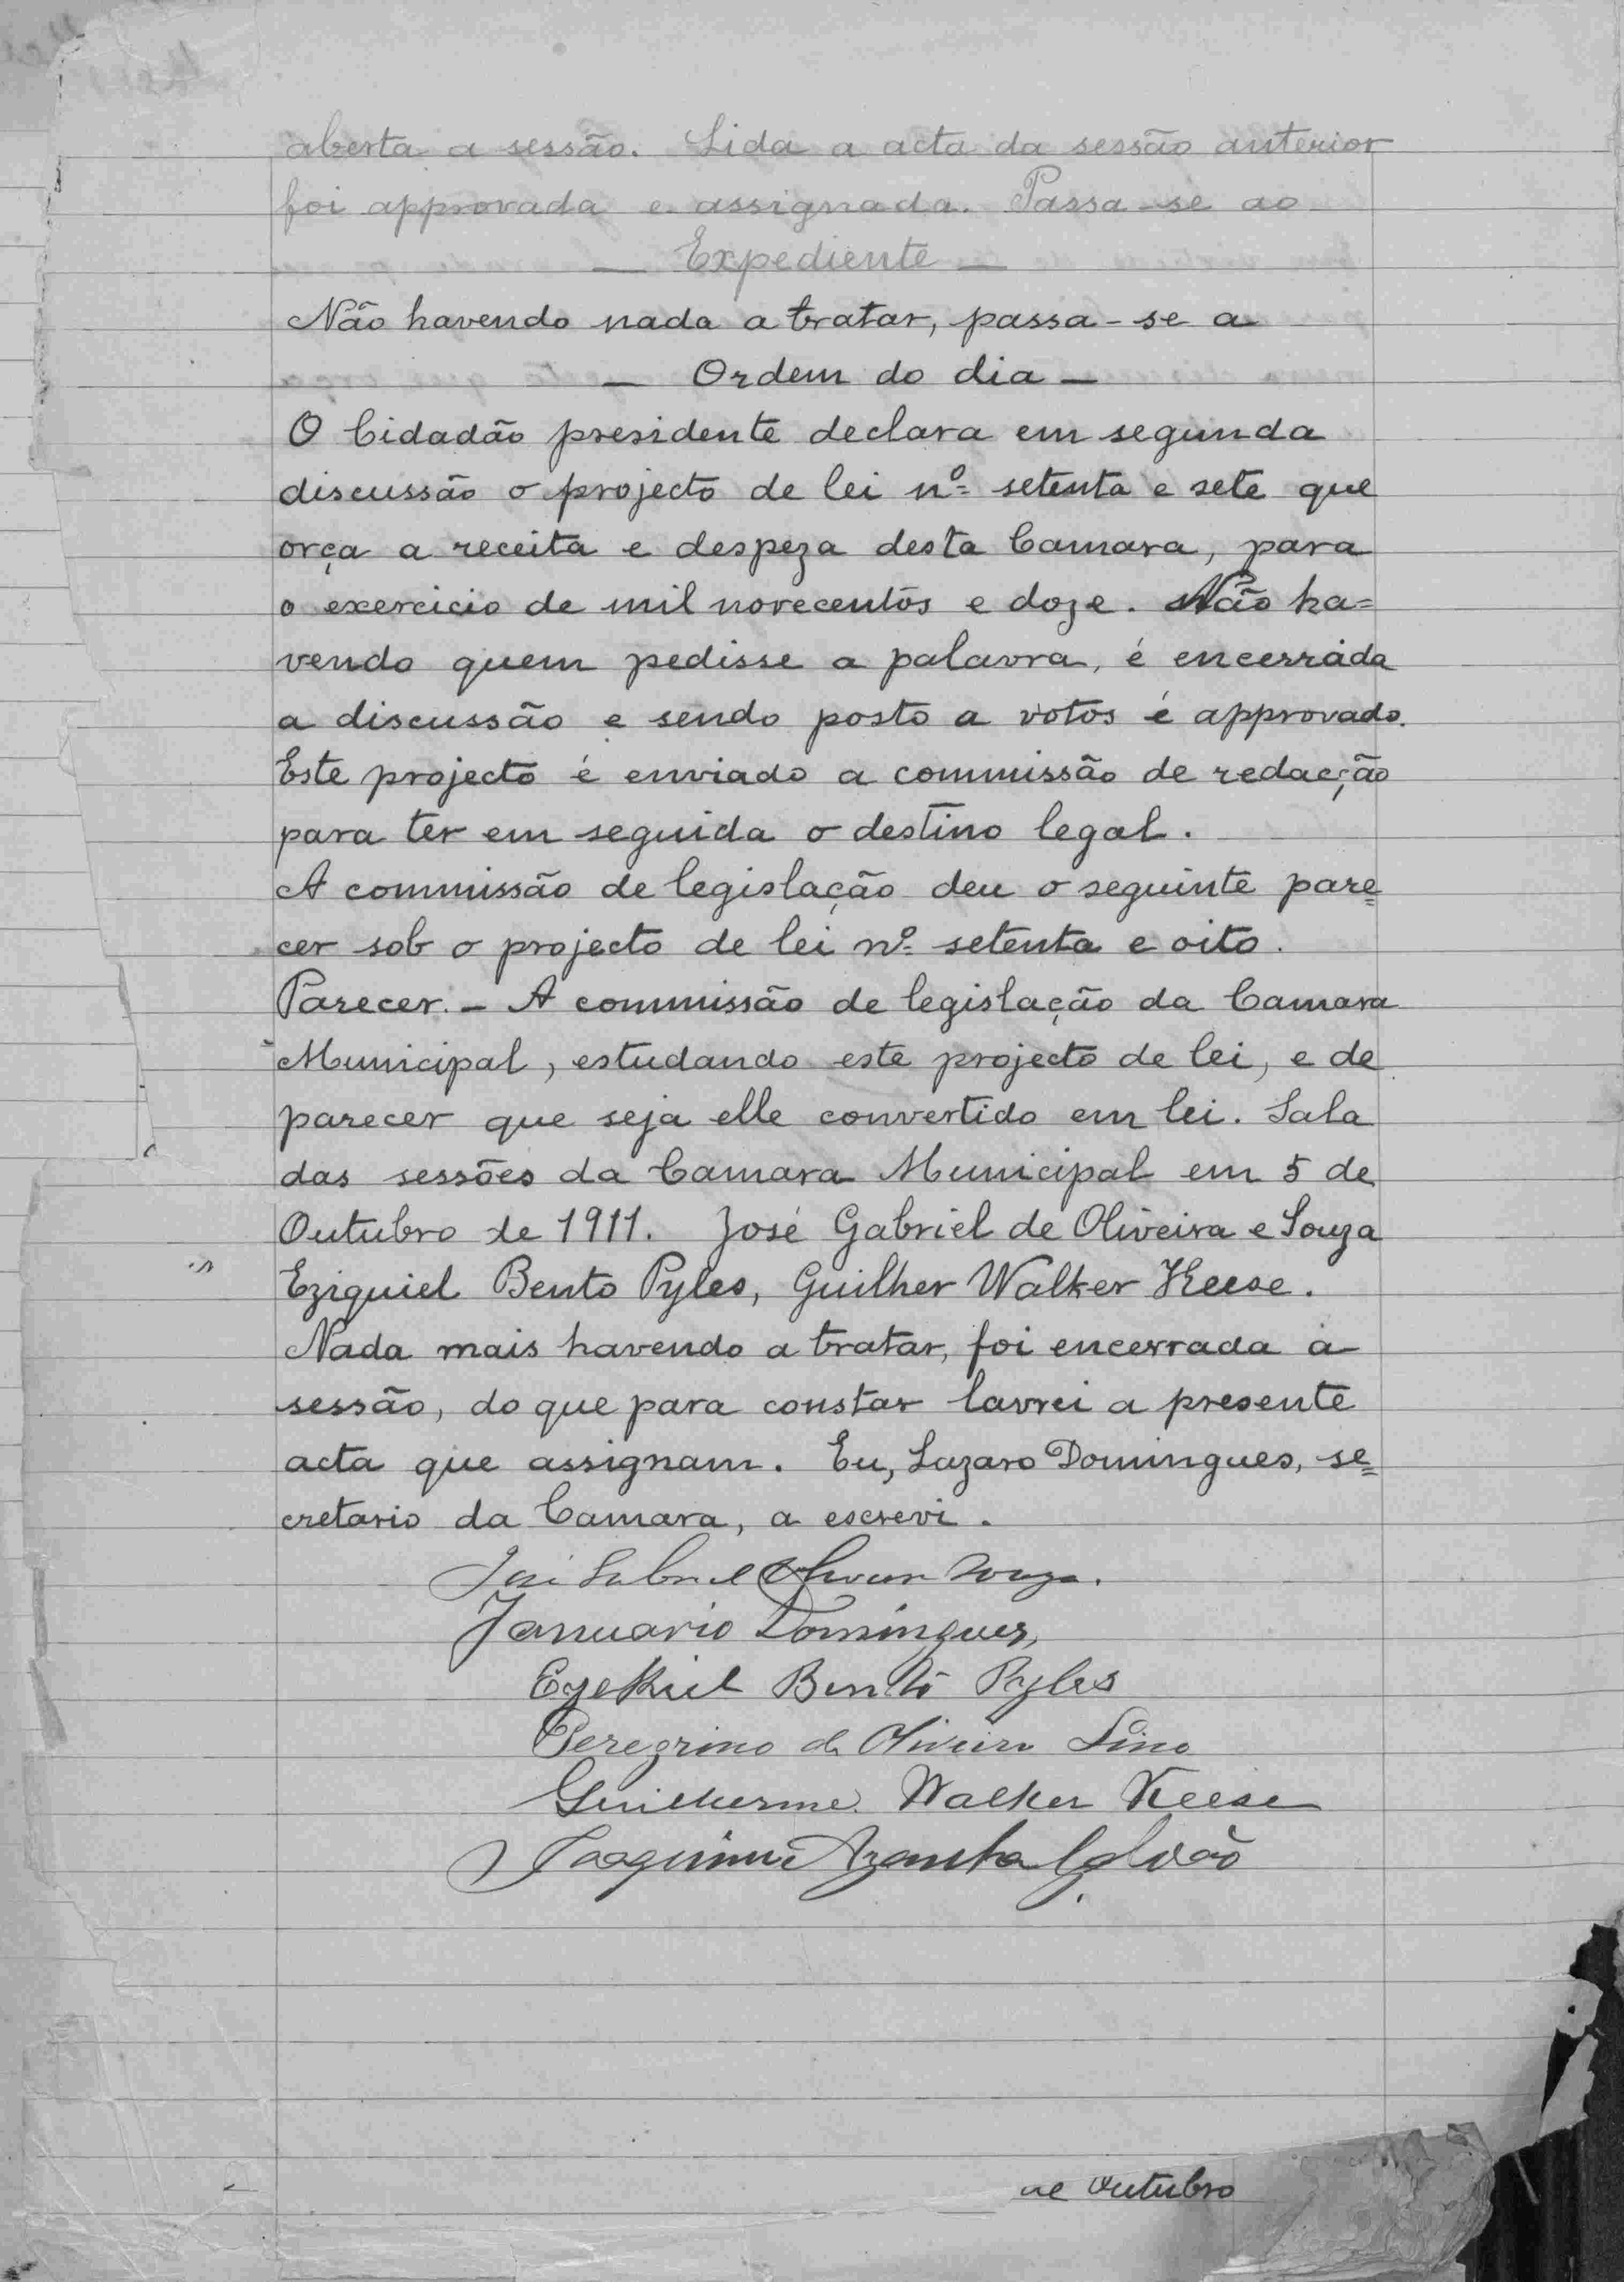 aberta a sessão. Lida a acta da sessão anterior
foi approvada e assignada. Passa-se ao
— Expediente —
Não havendo nada a tratar, passa-se a
— Ordem do dia —
O Cidadão presidente declara em segunda
discussão o projecto de lei nº setenta e sete que
orça a receita e despeza desta Camara, para
o exercicio de mil novecentos e doze. Não ha=
vendo quem pedisse a palavra, é encerrada
a discussão e sendo posto a votos é approvado.
Este projecto é enviado a commissão de redacção
para ter em seguida o destino legal.
A commissão de legislação deu o seguinte pare=
cer sob o projecto de lei nº setenta e oito.
Parecer. — A commissão de legislação da Camara
Municipal, estudando este projecto de lei, e de
parecer que seja elle convertido em lei. Sala
das sessões da Camara Municipal em 5 de
Outubro de 1911. José Gabriel de Oliveira e Souza
Eziquiel Bento Pyles, Guilher Walker Keese.
Nada mais havendo a tratar, foi encerrada a
sessão, do que para constar lavrei a presente
acta que assignam. Eu, Lazaro Domingues, se=
cretario da Camara, a escrevi.
José Gabriel Oliveira Souza.
Januario Domingues,
Ezekiel Bento Pyles
Peregrino de Oliveira Lino
Guilherme Walker Keese
Joaquim Azanha Galvão
de Outubro